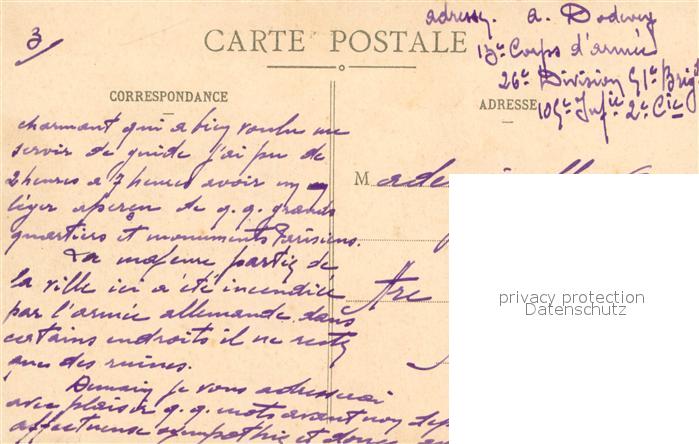 3
adresse. a. Dodwey
CARTE POSTALE
13e Corps d'armée
26e Division 51e Brig
CORRESPONDANCE
ADRESSE
105e Infie 2e Cie
charmant qui a bien voulu me
servir de guide j'ai pu de
2 heures a 7 heures avoir un
léger aperçu de q.q. grands
quartiers et monuments Parisiens.
La majeure partie de
la ville ici a été incendiée
par l'armée allemande dans
certains endroits il ne reste
que des ruines.
Demain je vous adresserai
avec plaisir q.q. mots avant mon dep
affectueuse sympathie et
Mademoiselle
privacy protection
Datenschutz